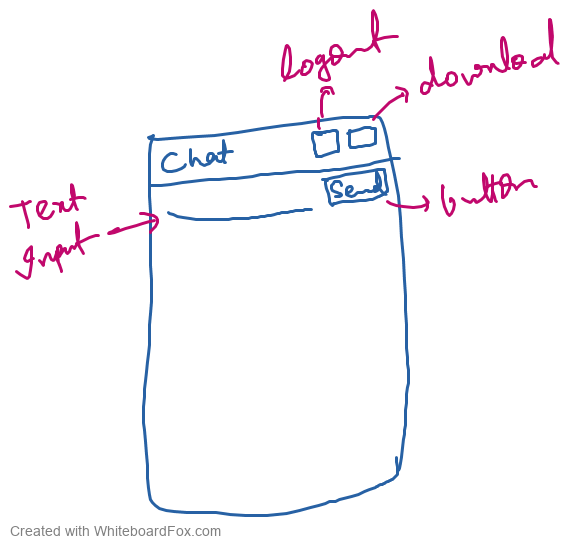 Logout
download
Chat
Send
Text
Input
button
Created with WhiteboardFox.com